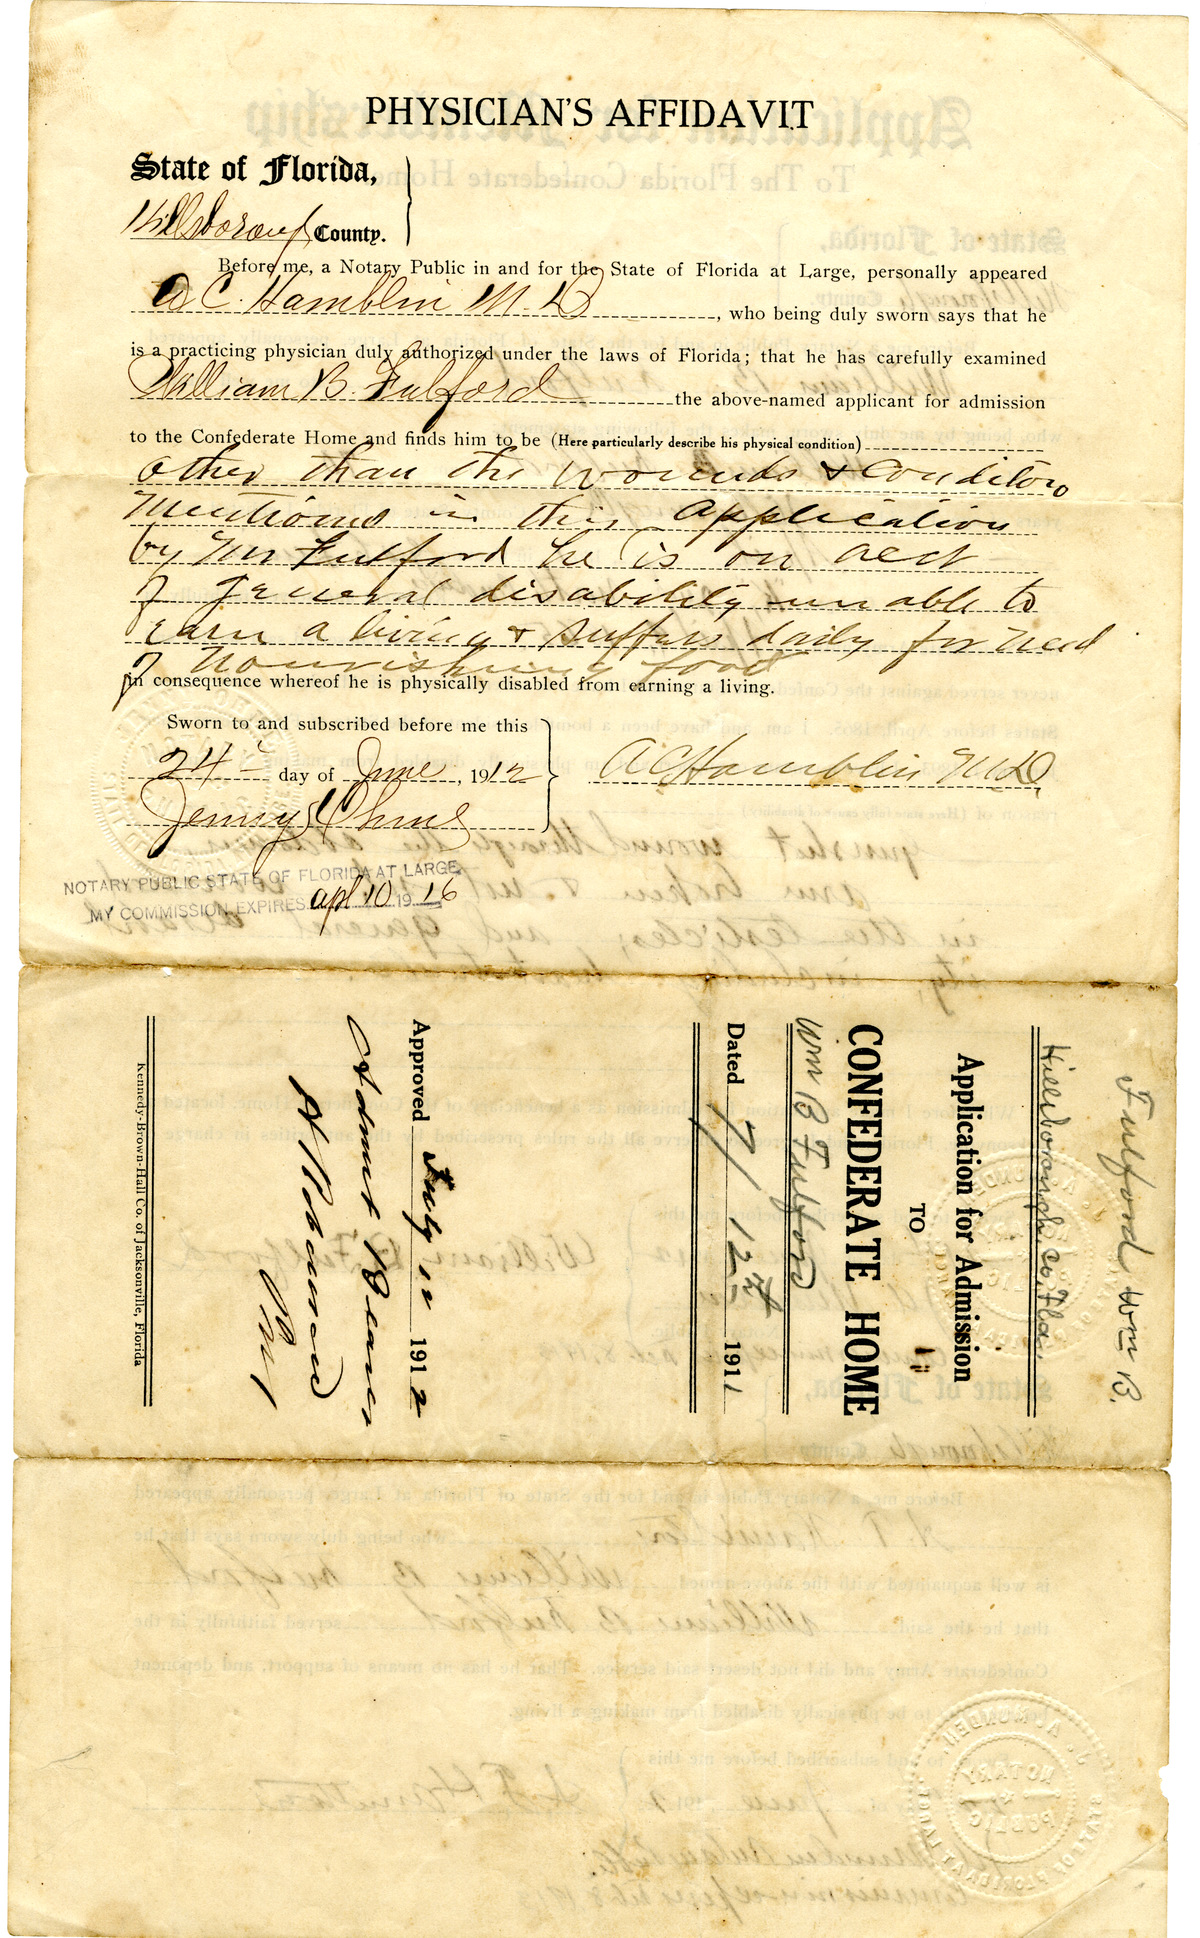 PHYSICIAN'S AFFIDAVIT
State of Florida,
Hillsborough County.
Before me, a Notary Public in and for the State of Florida at Large, personally appeared
A C. Hamblin M. D, who being duly sworn says that he
is a practicing physician duly authorized under the laws of Florida; that he has carefully examined
William B. Fulford the above-named applicant for admission
to the Confederate Home and finds him to be (Here particularly describe his physical condition)
other than the wounds & condition
mentioned in this application
by Mr Fulford he is on acct
of general disability unable to
earn a living & suffers daily for need
of nourishing food
in consequence whereof he is physically disabled from earning a living.
Sworn to and subscribed before me this
24 day of June, 1912
A C Hamblin M.D.
NOTARY PUBLIC STATE OF FLORIDA AT LARGE
MY COMMISSION EXPIRES apl 10 1916
Fulford Wm B.
Hillsborough, Co, Fla.
Application for Admission
TO
CONFEDERATE HOME
Wm B Fulford
Dated 7/12th 1911
Approved July 12 1912
Admit
Kennedy-Brown-Hall Co. of Jacksonville, Florida